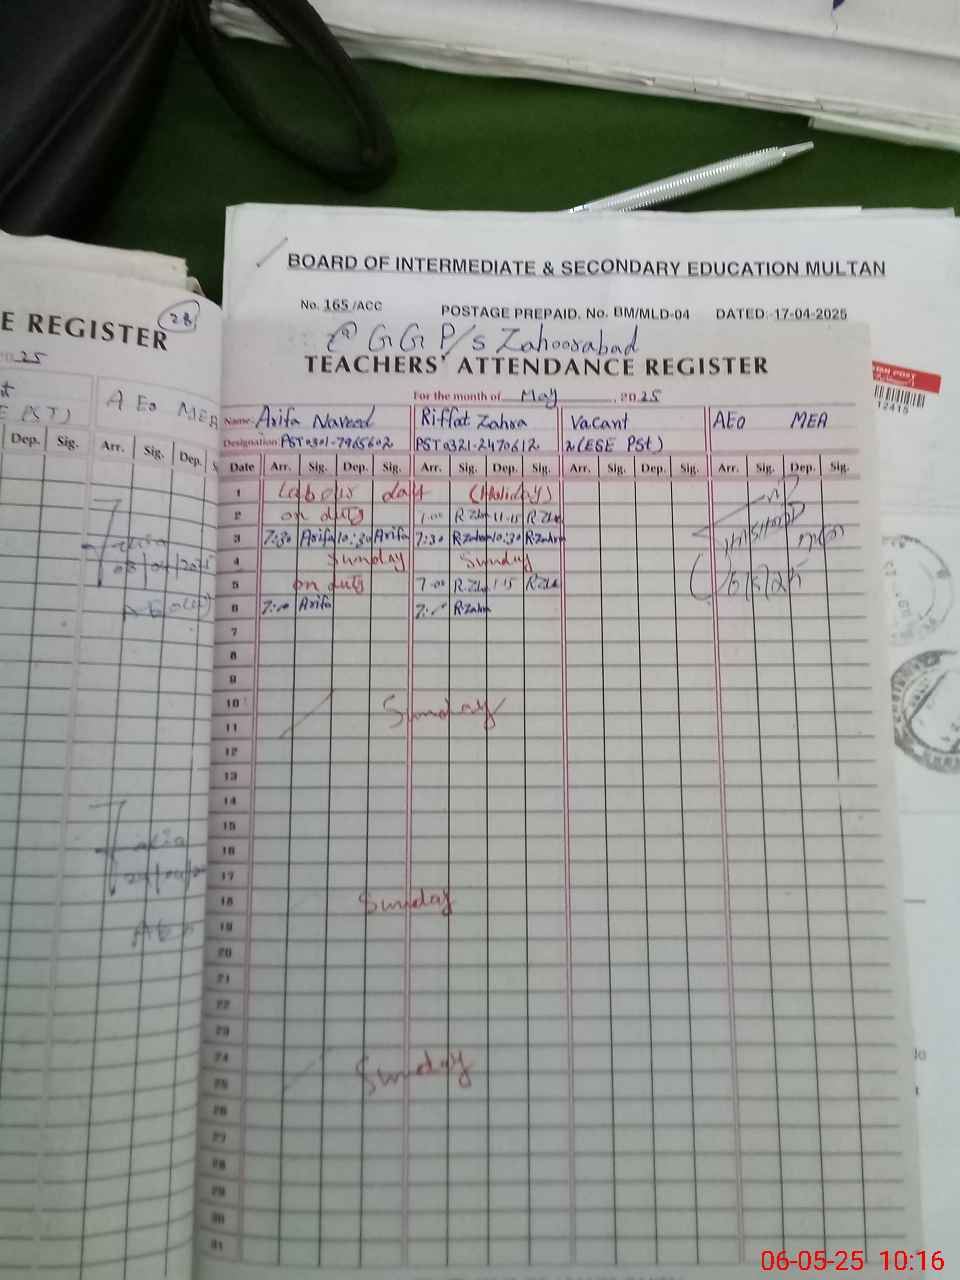 BOARD OF INTERMEDIATE & SECONDARY EDUCATION MULTAN
No. 165/ACC POSTAGE PREPAID. No. BM/MLD-04 DATED:-17-04-2025
E REGISTER 28
25
AEo MEA
E PST)
Dep. Sig. Arr. Sig. Dep.
@ GG P/s Zahoorabad
TEACHERS' ATTENDANCE REGISTER
12415
For the month of May, 2025
Name Arifa Naveed Riffat Zahra Vacant AEo MEA
Designation PST 0301-7965602 PST 0321-2470612 2(ESE PSt)
Date Arr. Sig. Dep. Sig. Arr. Sig. Dep. Sig. Arr. Sig. Dep. Sig. Arr. Sig. Dep. Sig.
1 Labour day (Holiday)
2 on duty 7:00 R.Zhr 11.15 R.Zhr
3 7:30 Arifa 10:30 Arifa 7:30 R.Zahra 10:30 R.Zahra
4 Sunday Sunday
5 on duty 7:00 R.Zhr 1:15 R.Zhr
6 7:00 Arifa R.Zahra
7
8
9
10
11 Sunday
12
13
14
15
16
17
18 Sunday
19
20
21
22
23
24
25 Sunday
26
27
28
29
30
31
06-05-25 10:16